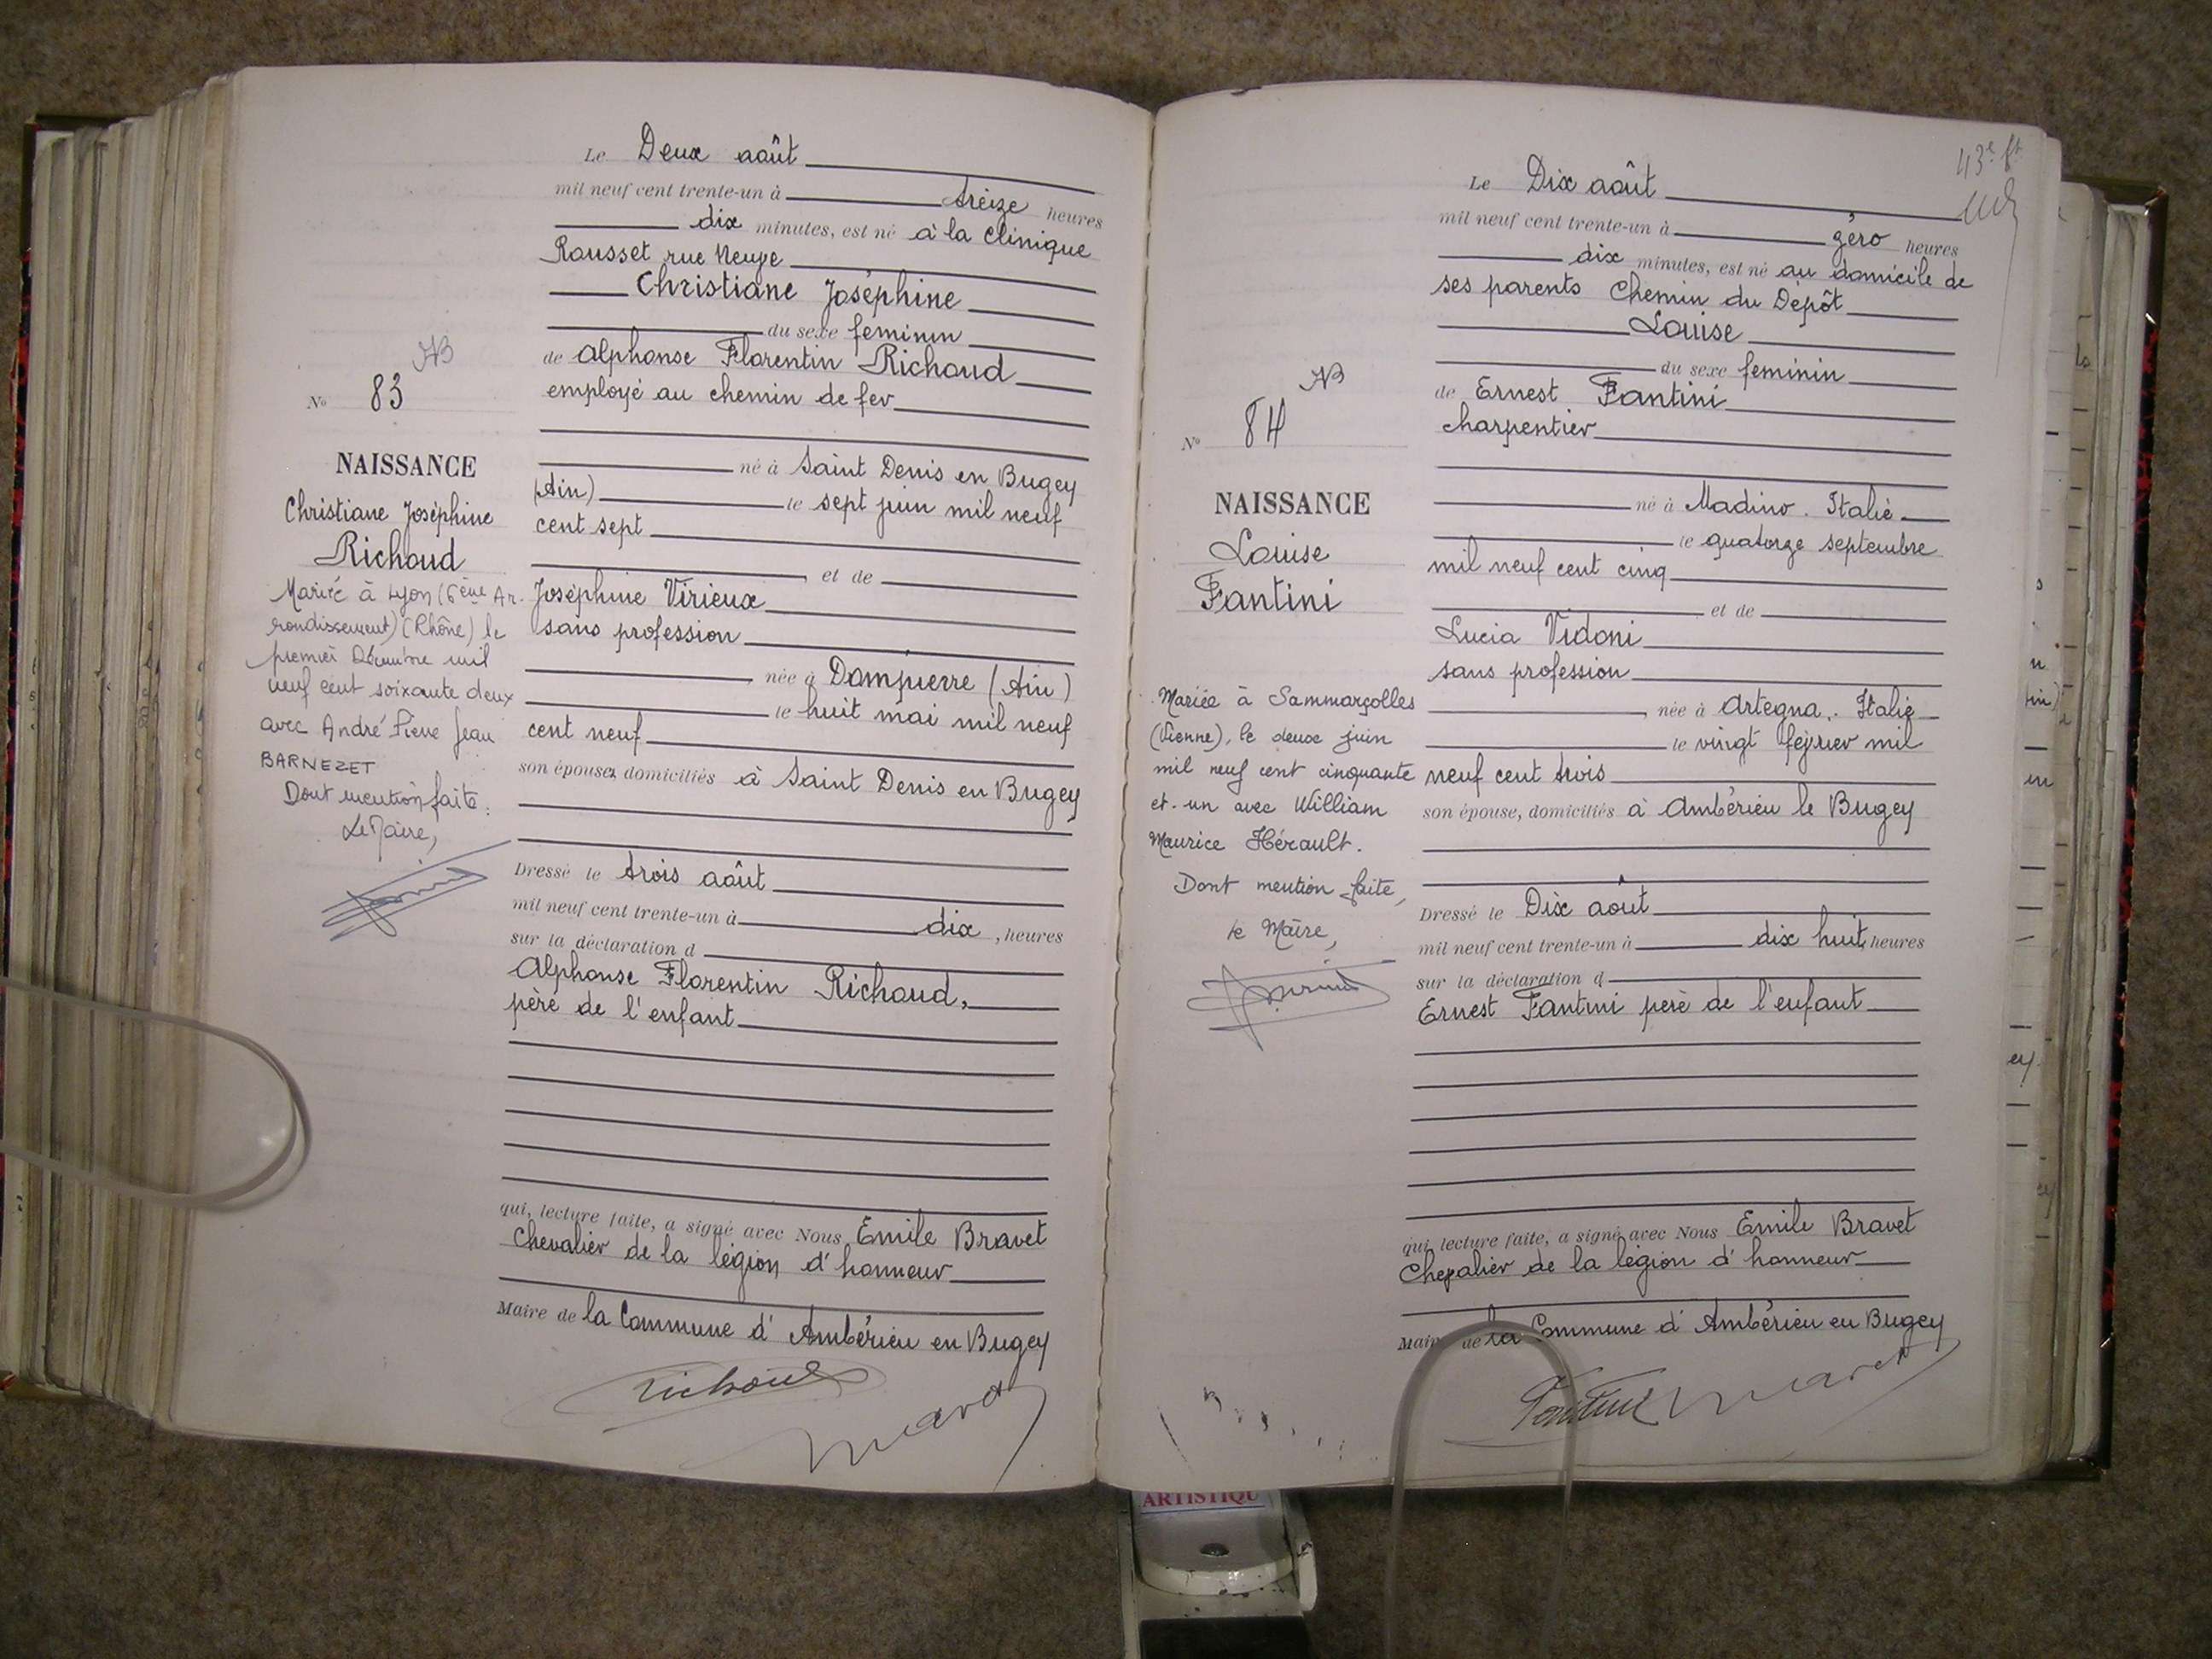 Le Deux août
mil neuf cent trente-un à treize heures
dix minutes, est né à la Clinique
Rousset rue Neuve
Christiane Joséphine
du sexe féminin
de Alphonse Florentin Richaud
employé au chemin de fer
né à Saint Denis en Bugey
(Ain) le sept juin mil neuf
cent sept
et de
Joséphine Virieux
sans profession
née à Dompierre (Ain)
le huit mai mil neuf
cent neuf
son épouse, domiciliés à Saint Denis en Bugey
Dressé le trois août
mil neuf cent trente-un à dix, heures
sur la déclaration d
Alphonse Florentin Richaud,
père de l'enfant
qui, lecture faite, a signé avec Nous Emile Bravet
Chevalier de la légion d'honneur
Maire de la Commune d'Ambérieu en Bugey
Richaud
NB
No 83
NAISSANCE
Christiane Joséphine
Richaud
Mariée à Lyon (6ème Ar-
rondissement) (Rhône) le
premier Décembre mil
neuf cent soixante deux
avec André Pierre Jean
BARNEZET
Dont mention faite.
Le Maire,
43e ft
Le Dix août
mil neuf cent trente-un à zéro heures
dix minutes, est né au domicile de
ses parents Chemin du Dépôt
Louise
du sexe feminin
de Ernest Fantini
charpentier
né à Madino. Italie
le quatorze septembre
mil neuf cent cinq
et de
Lucia Vidoni
sans profession
née à Artegna. Italie
le vingt février mil
neuf cent trois
son épouse, domiciliés à Ambérieu le Bugey
Dressé le Dix août
mil neuf cent trente-un à dix huit, heures
sur la déclaration d
Ernest Fantini père de l'enfant
qui, lecture faite, a signé avec Nous Emile Bravet
Chevalier de la légion d'honneur
Maire de la Commune d'Ambérieu en Bugey
Fantini
NB
No 84
NAISSANCE
Louise
Fantini
Mariée à Sammarçolles
(Vienne), le deux juin
mil neuf cent cinquante
et-un avec William
Maurice Hérault.
Dont mention faite,
le Maire,
ARTISTIQU